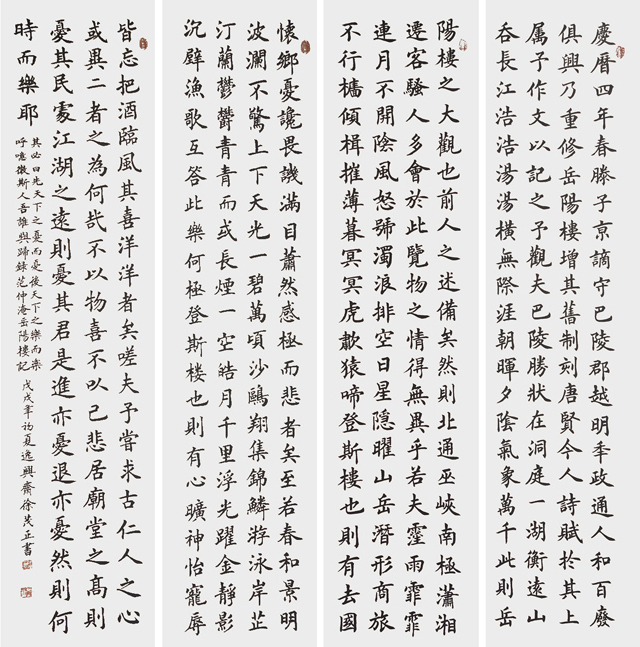 慶曆四年春滕子京謫守巴陵郡越明年政通人和百廢
俱興乃重修岳陽樓增其舊制刻唐賢今人詩賦於其上
属予作文以記之予觀夫巴陵勝狀在洞庭一湖銜遠山
吞長江浩浩湯湯橫無際涯朝暉夕陰氣象萬千此則岳
陽樓之大觀也前人之述備矣然則北通巫峽南極瀟湘
遷客騷人多會於此覽物之情得無異乎若夫霪雨霏霏
連月不開陰風怒號濁浪排空日星隱曜山岳潛形商旅
不行檣傾楫摧薄暮冥冥虎嘯猿啼登斯樓也則有去國
懷鄉憂讒畏譏滿目蕭然感極而悲者矣至若春和景明
波瀾不驚上下天光一碧萬頃沙鷗翔集錦鱗游泳岸芷
汀蘭鬱鬱青青而或長煙一空皓月千里浮光躍金靜影
沉璧漁歌互答此樂何極登斯樓也則有心曠神怡寵辱
皆忘把酒臨風其喜洋洋者矣嗟夫予嘗求古仁人之心
或異二者之為何哉不以物喜不以己悲居廟堂之高則
憂其民處江湖之遠則憂其君是進亦憂退亦憂然則何
時而樂耶
其必曰先天下之憂而憂後天下之樂而樂
呼噫微斯人吾誰與歸錄范仲淹岳陽樓記
戊戌年初夏逸興齋徐茂正書